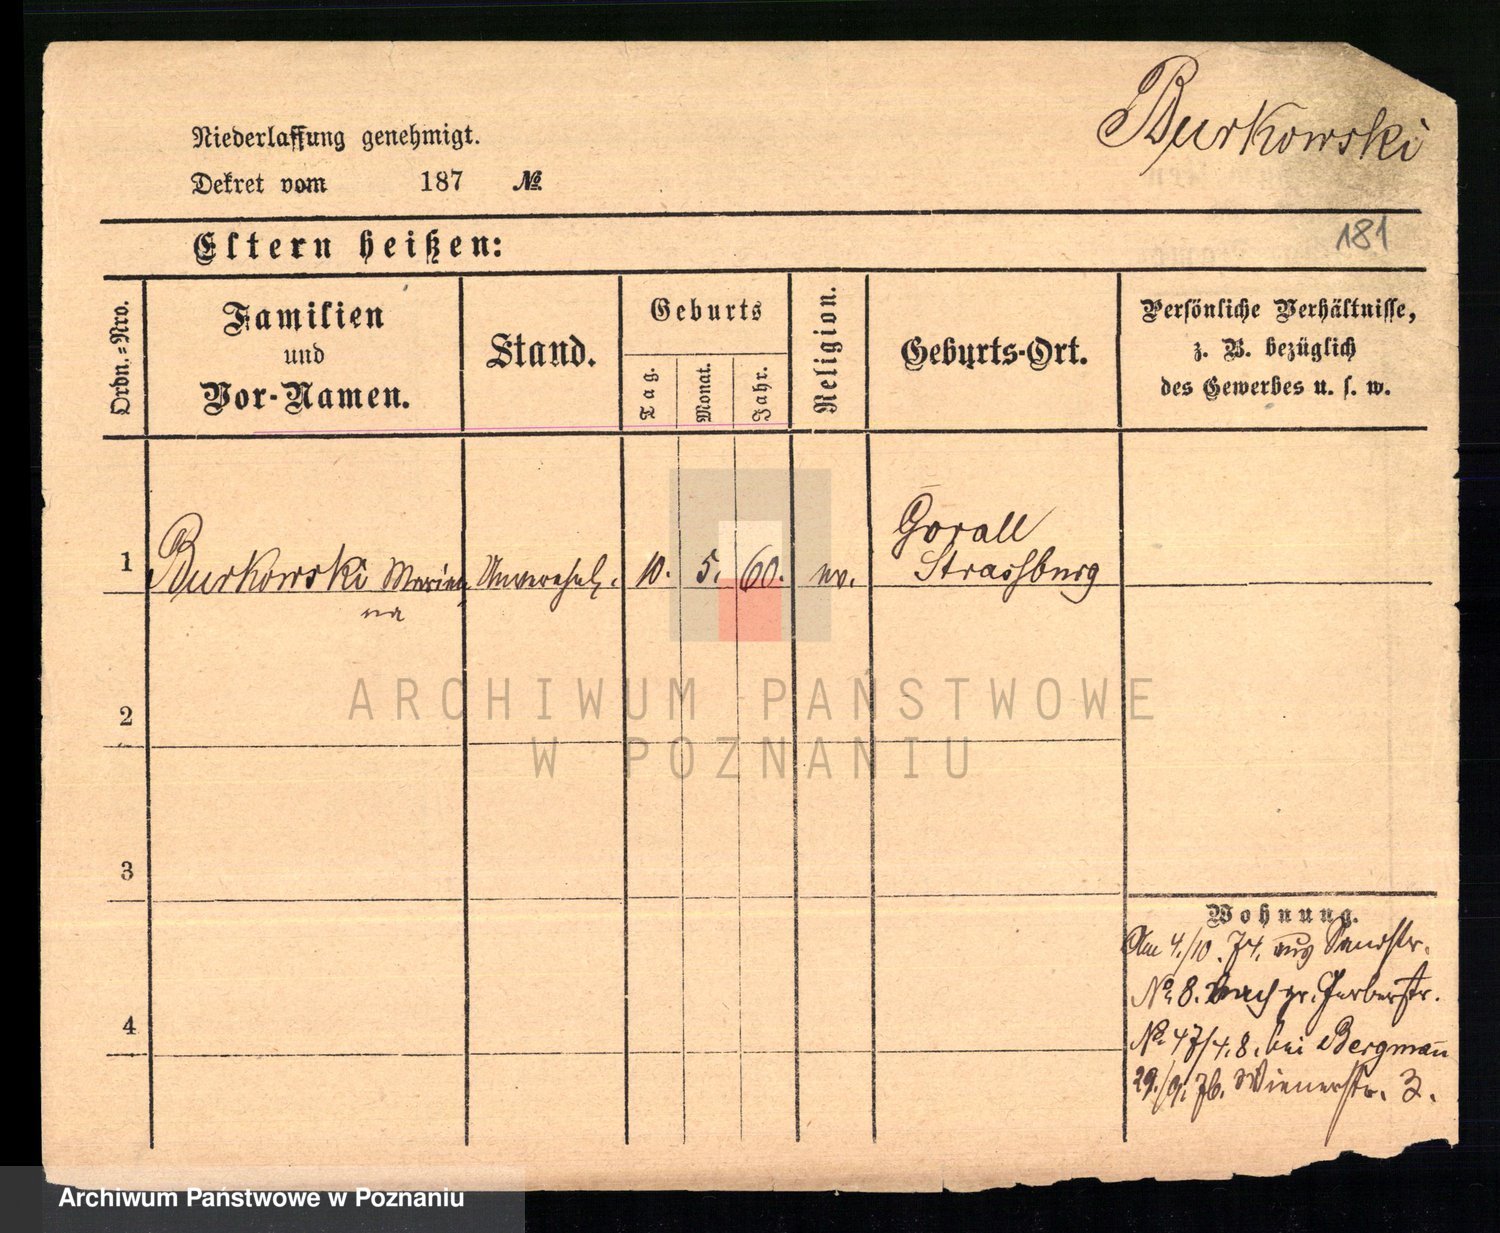 Burkowski
Niederlassung genehmigt.
Dekret vom 187 №
181
Eltern heißen:
Ordn.=Nro.
Familien
und
Vor-Namen.
Stand.
Geburts
Tag.
Monat.
Jahr.
Religion.
Geburts-Ort.
Persönliche Verhältnisse,
z. B. bezüglich
des Gewerbes u. s. w.
1 Burkowski Marian
na
Unverehel. 10. 5. 60. ev.
Gorall
Strassburg
2
3
4
Wohnung.
Am 4./10. 74. aus Sandstr.
№ 8. nach gr. Gerberstr.
№ 47/4.8. bei Bergmañ
29./9. 76. Wienerstr. 3.
ARCHIWUM PAŃSTWOWE
W POZNANIU
Archiwum Państwowe w Poznaniu